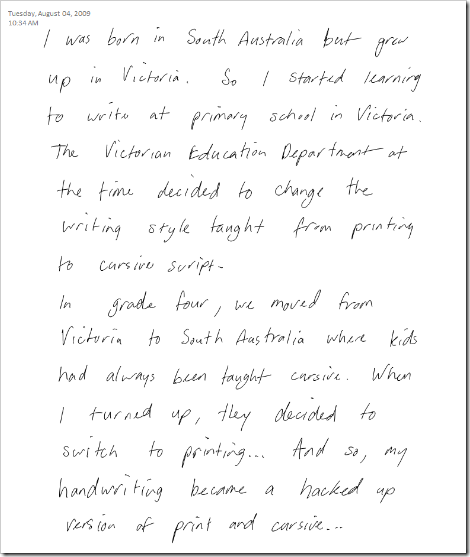 Tuesday, August 04, 2009
10:34 AM
I was born in South Australia but grew
up in Victoria. So I started learning
to write at primary school in Victoria.
The Victorian Education Department at
the time decided to change the
writing style taught from printing
to cursive script.
In grade four, we moved from
Victoria to South Australia where kids
had always been taught cursive. When
I turned up, they decided to
switch to printing... And so, my
handwriting became a hacked up
version of print and cursive...